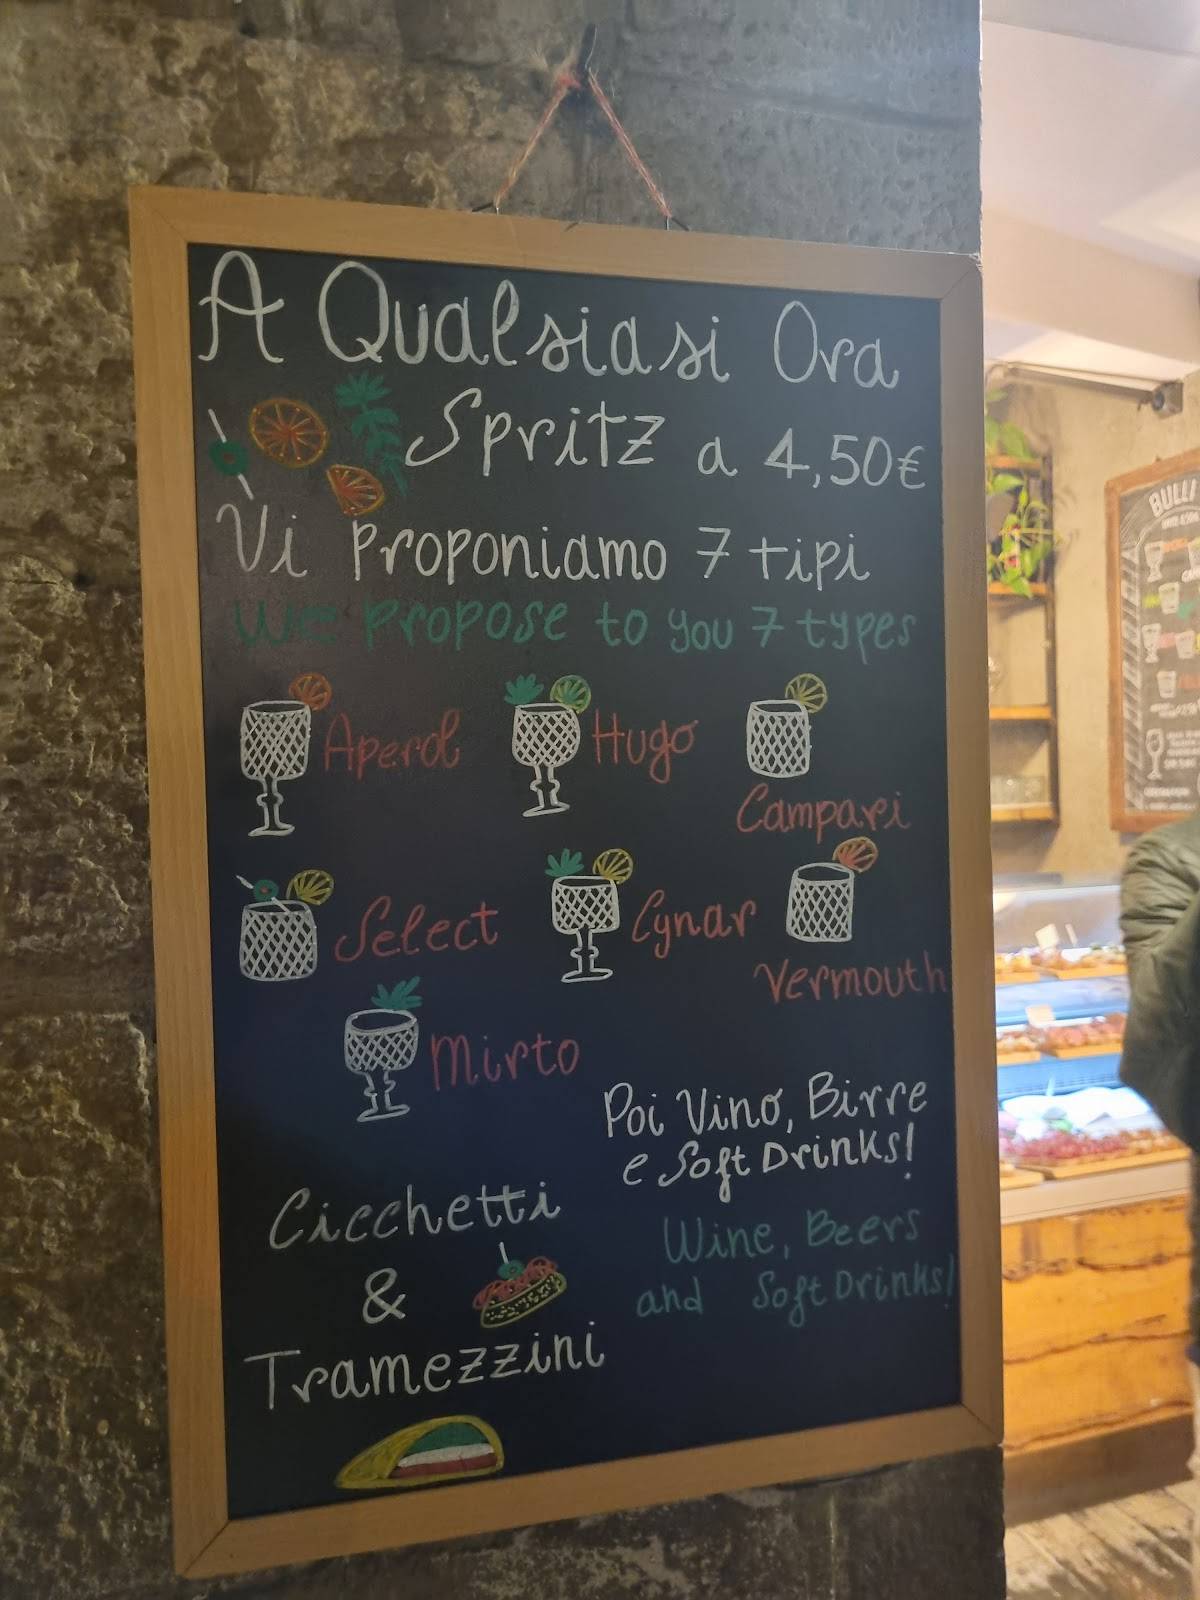 A Qualsiasi Ora
Spritz a 4,50€
Vi proponiamo 7 tipi
We propose to you 7 types
Aperol Hugo
Campari
Select Cynar
Vermouth
Mirto
Poi Vino, Birre
e Soft Drinks!
Cicchetti
&
Tramezzini
Wine, Beers
and Soft Drinks!
BULLI